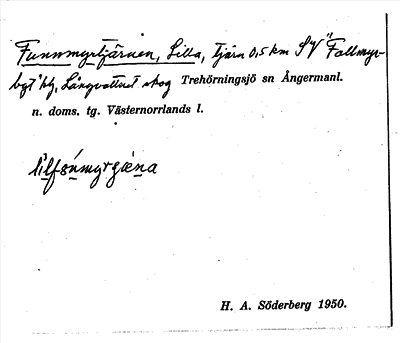 Funnmyrtjärnen, Lilla, tjärn 0,5 km SV Follmyr-
bgt hly, Långvattnet skog Trehörningsjö sn Ångermanl.
n. doms. tg. Västernorrlands l.
H. A. Söderberg 1950.